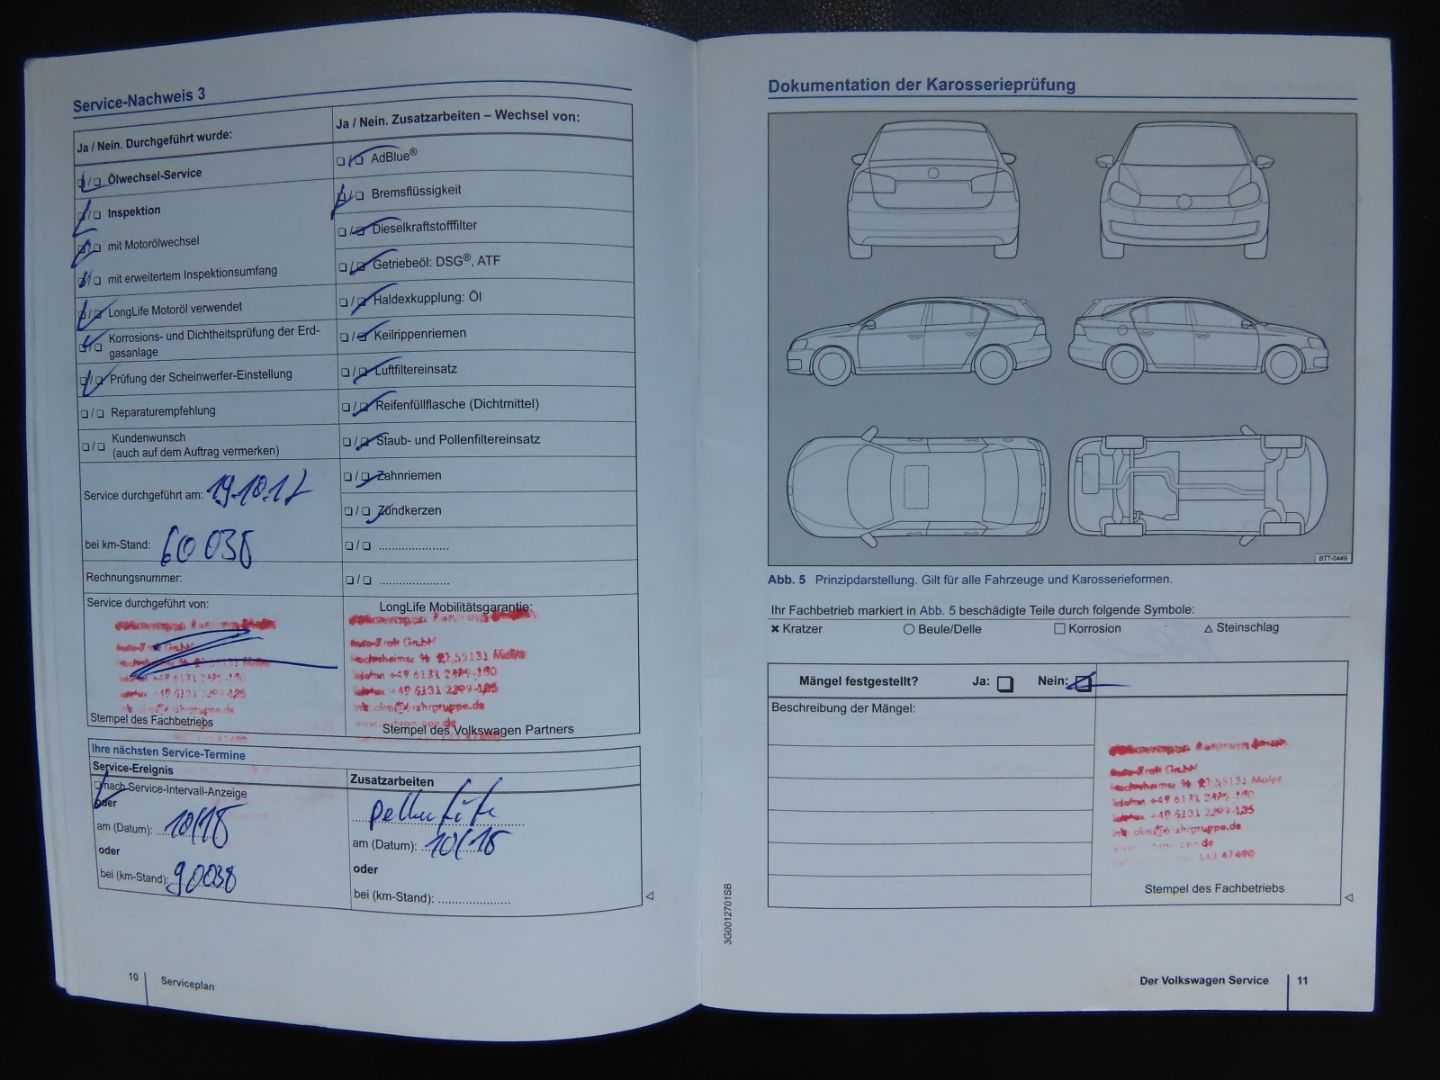 Service-Nachweis 3
Ja / Nein. Durchgeführt wurde:
Ölwechsel-Service
Inspektion
mit Motorölwechsel
mit erweitertem Inspektionsumfang
LongLife Motoröl verwendet
Korrosions- und Dichtheitsprüfung der Erd-
gasanlage
Prüfung der Scheinwerfer-Einstellung
Reparaturempfehlung
Kundenwunsch
(auch auf dem Auftrag vermerken)
Service durchgeführt am: 19.10.17
bei km-Stand: 60 038
Rechnungsnummer:
Service durchgeführt von:
Telefon +49 6131
Telefax +49 6131
Stempel des Fachbetriebs
Ja / Nein. Zusatzarbeiten – Wechsel von:
AdBlue®
Bremsflüssigkeit
Dieselkraftstofffilter
Getriebeöl: DSG®, ATF
Haldexkupplung: Öl
Keilrippenriemen
Luftfiltereinsatz
Reifenfüllflasche (Dichtmittel)
Staub- und Pollenfiltereinsatz
Zahnriemen
Zündkerzen
....................
....................
LongLife Mobilitätsgarantie:
GmbH
55131 Mainz
Telefon +49 6131
Telefax +49 6131
Stempel des Volkswagen Partners
Ihre nächsten Service-Termine
Service-Ereignis
nach Service-Intervall-Anzeige
oder
am (Datum):
oder
bei (km-Stand): 90038
Zusatzarbeiten
am (Datum):
oder
bei (km-Stand): ....................
10 Serviceplan
Dokumentation der Karosserieprüfung
BTT-0449
Abb. 5 Prinzipdarstellung. Gilt für alle Fahrzeuge und Karosserieformen.
Ihr Fachbetrieb markiert in Abb. 5 beschädigte Teile durch folgende Symbole:
Kratzer
Beule/Delle
Korrosion
Steinschlag
Mängel festgestellt? Ja: Nein:
Beschreibung der Mängel:
GmbH
55131 Mainz
Telefon +49 6131
Telefax +49 6131
Stempel des Fachbetriebs
3G0012701SB
Der Volkswagen Service 11